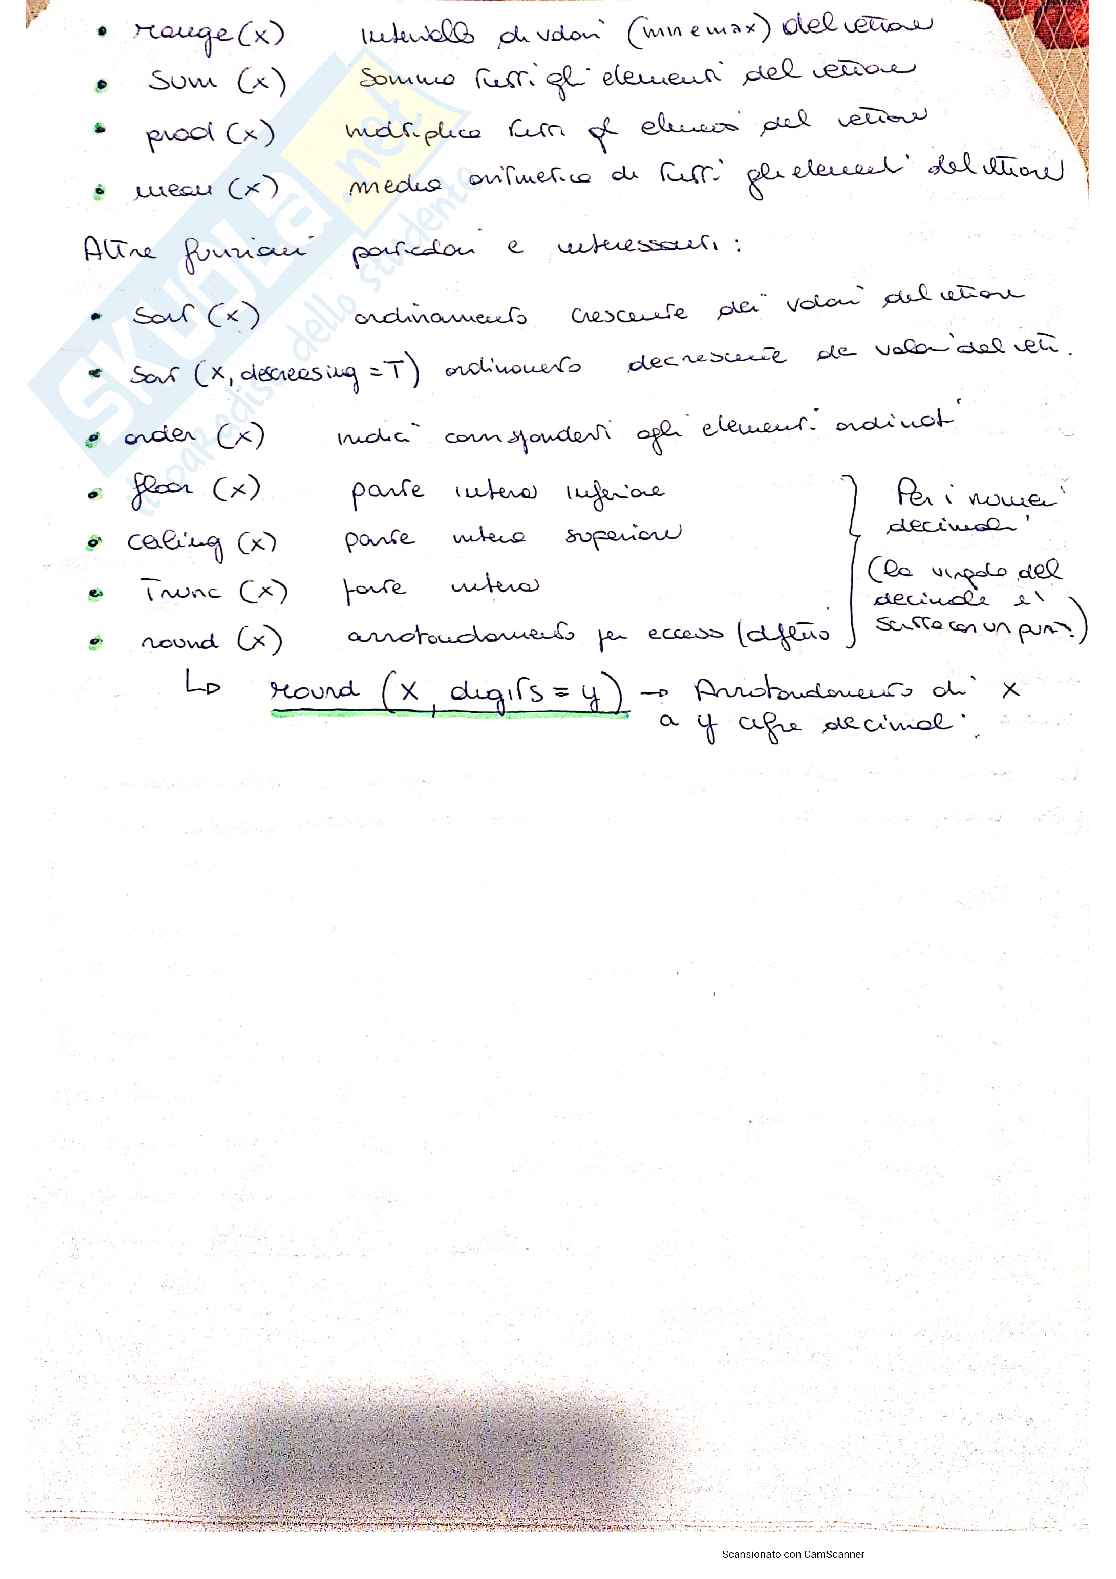 • range (x) intervallo di valori (min e max) del vettore
• sum (x) somma tutti gli elementi del vettore
• prod (x) moltiplica tutti gli elementi del vettore
• mean (x) media aritmetica di tutti gli elementi del vettore
Altre funzioni particolari e interessanti:
• sort (x) ordinamento crescente dei valori del vettore
• sort (x, decreasing = T) ordinamento decrescente de valori del vett.
• order (x) indici corrispondenti agli elementi ordinati
• floor (x) parte intera inferiore
• ceiling (x) parte intera superiore
• Trunc (x) parte intera
• round (x) arrotondamento per eccesso / difetto
Per i numeri
decimali
(la virgola del
decimale è
scritta con un punto)
↳ round (x, digits = y) → Arrotondamento di x
a y cifre decimali.
SKUOLA.net
dello studente
Scansionato con CamScanner